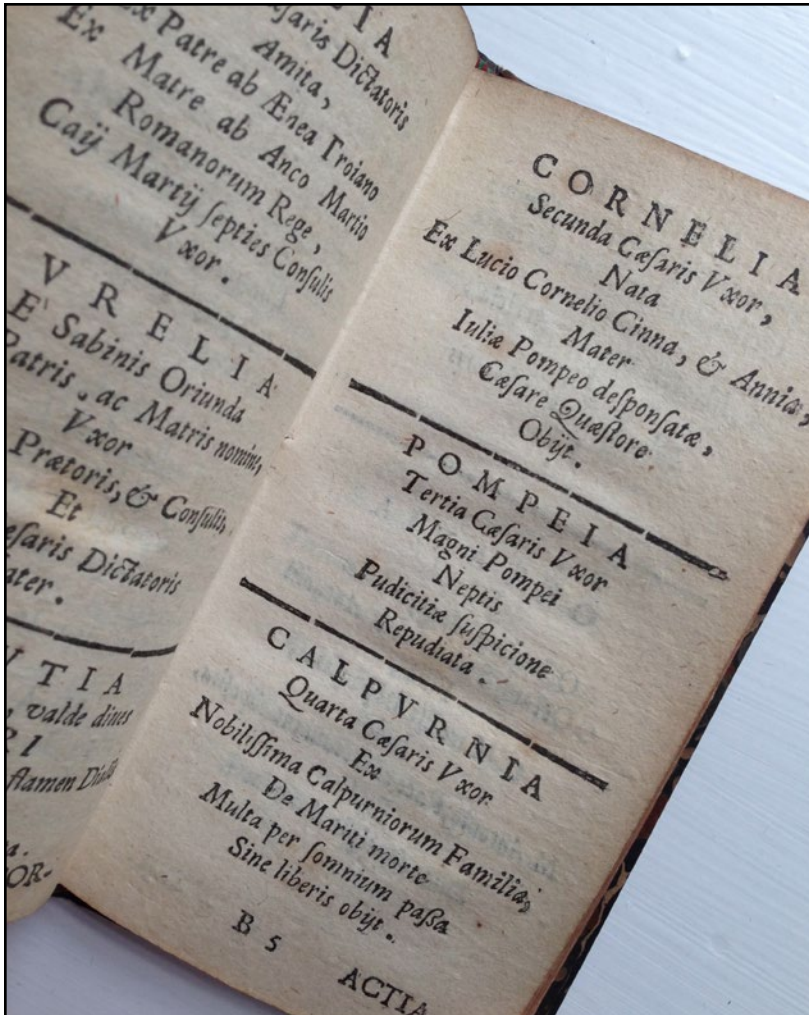 LIA
saris Dictatoris
Amita,
Ex Patre ab Ænea Troiano
Ex Matre ab Anco Martio
Romanorum Rege,
Caij Martij ſepties Conſulis
Vxor.
VRELIA
E' Sabinis Oriunda
Patris, ac Matris nomine,
Vxor
Prætoris, & Conſulis,
Et
eſaris Dictatoris
ater.
TIA
, valde diues
RI
flamen
OR-
CORNELIA
Secunda Cæſaris Vxor,
Nata
Ex Lucio Cornelio Cinna, & Annia,
Mater
Iuliæ Pompeo deſponſatæ,
Cæſare Quæſtore
Obijt.
POMPEIA
Tertia Cæſaris Vxor
Magni Pompei
Neptis
Pudicitiæ ſuſpicione
Repudiata.
CALPVRNIA
Quarta Cæſaris Vxor
Ex
Nobiliſſima Calpurniorum Familia,
De Mariti morte
Multa per ſomnium paſſa
Sine liberis obijt.
B 5
ACTIA